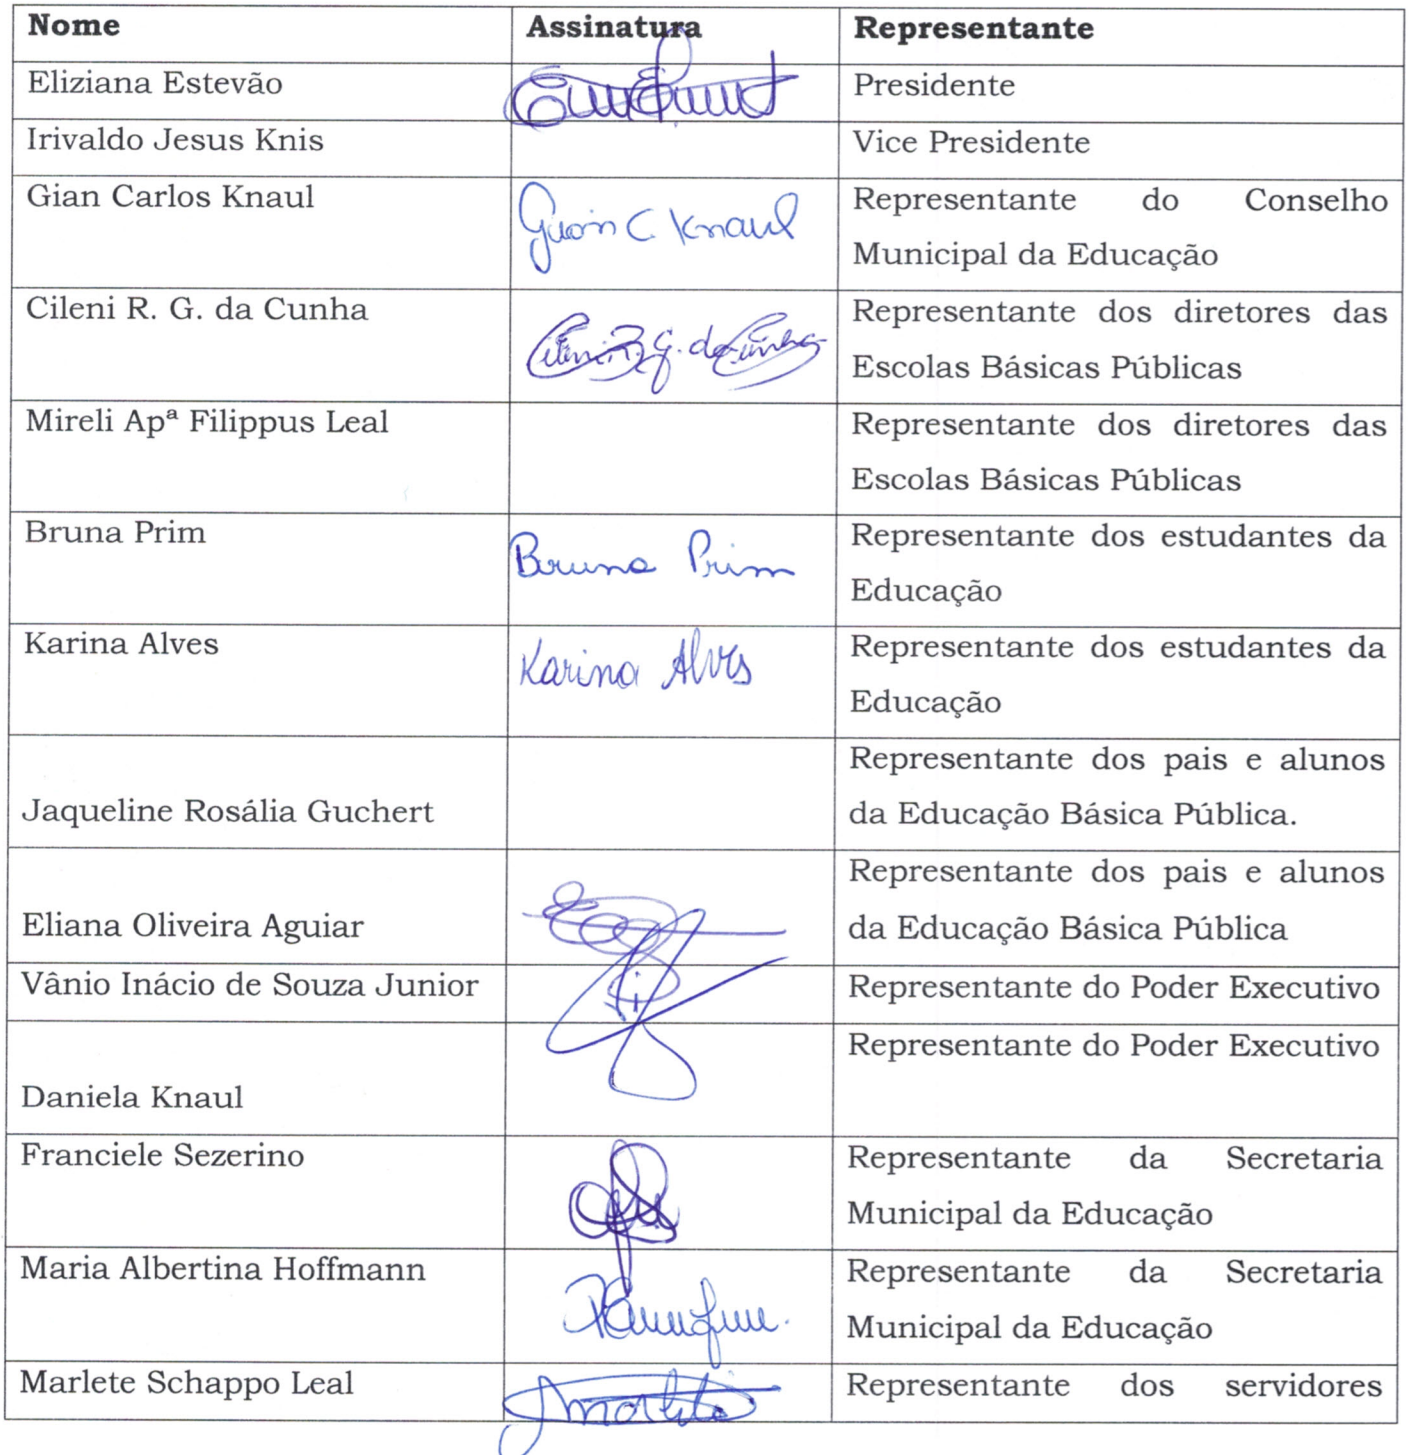 Nome Assinatura Representante
Eliziana Estevão Presidente
Irivaldo Jesus Knis Vice Presidente
Gian Carlos Knaul Gian C. Knaul Representante do Conselho
Municipal da Educação
Cileni R. G. da Cunha Cileni R. G. da Cunha Representante dos diretores das
Escolas Básicas Públicas
Mireli Apª Filippus Leal Representante dos diretores das
Escolas Básicas Públicas
Bruna Prim Bruna Prim Representante dos estudantes da
Educação
Karina Alves Karina Alves Representante dos estudantes da
Educação
Representante dos pais e alunos
Jaqueline Rosália Guchert da Educação Básica Pública.
Representante dos pais e alunos
Eliana Oliveira Aguiar da Educação Básica Pública
Vânio Inácio de Souza Junior Representante do Poder Executivo
Representante do Poder Executivo
Daniela Knaul
Franciele Sezerino Representante da Secretaria
Municipal da Educação
Maria Albertina Hoffmann Representante da Secretaria
Municipal da Educação
Marlete Schappo Leal Representante dos servidores